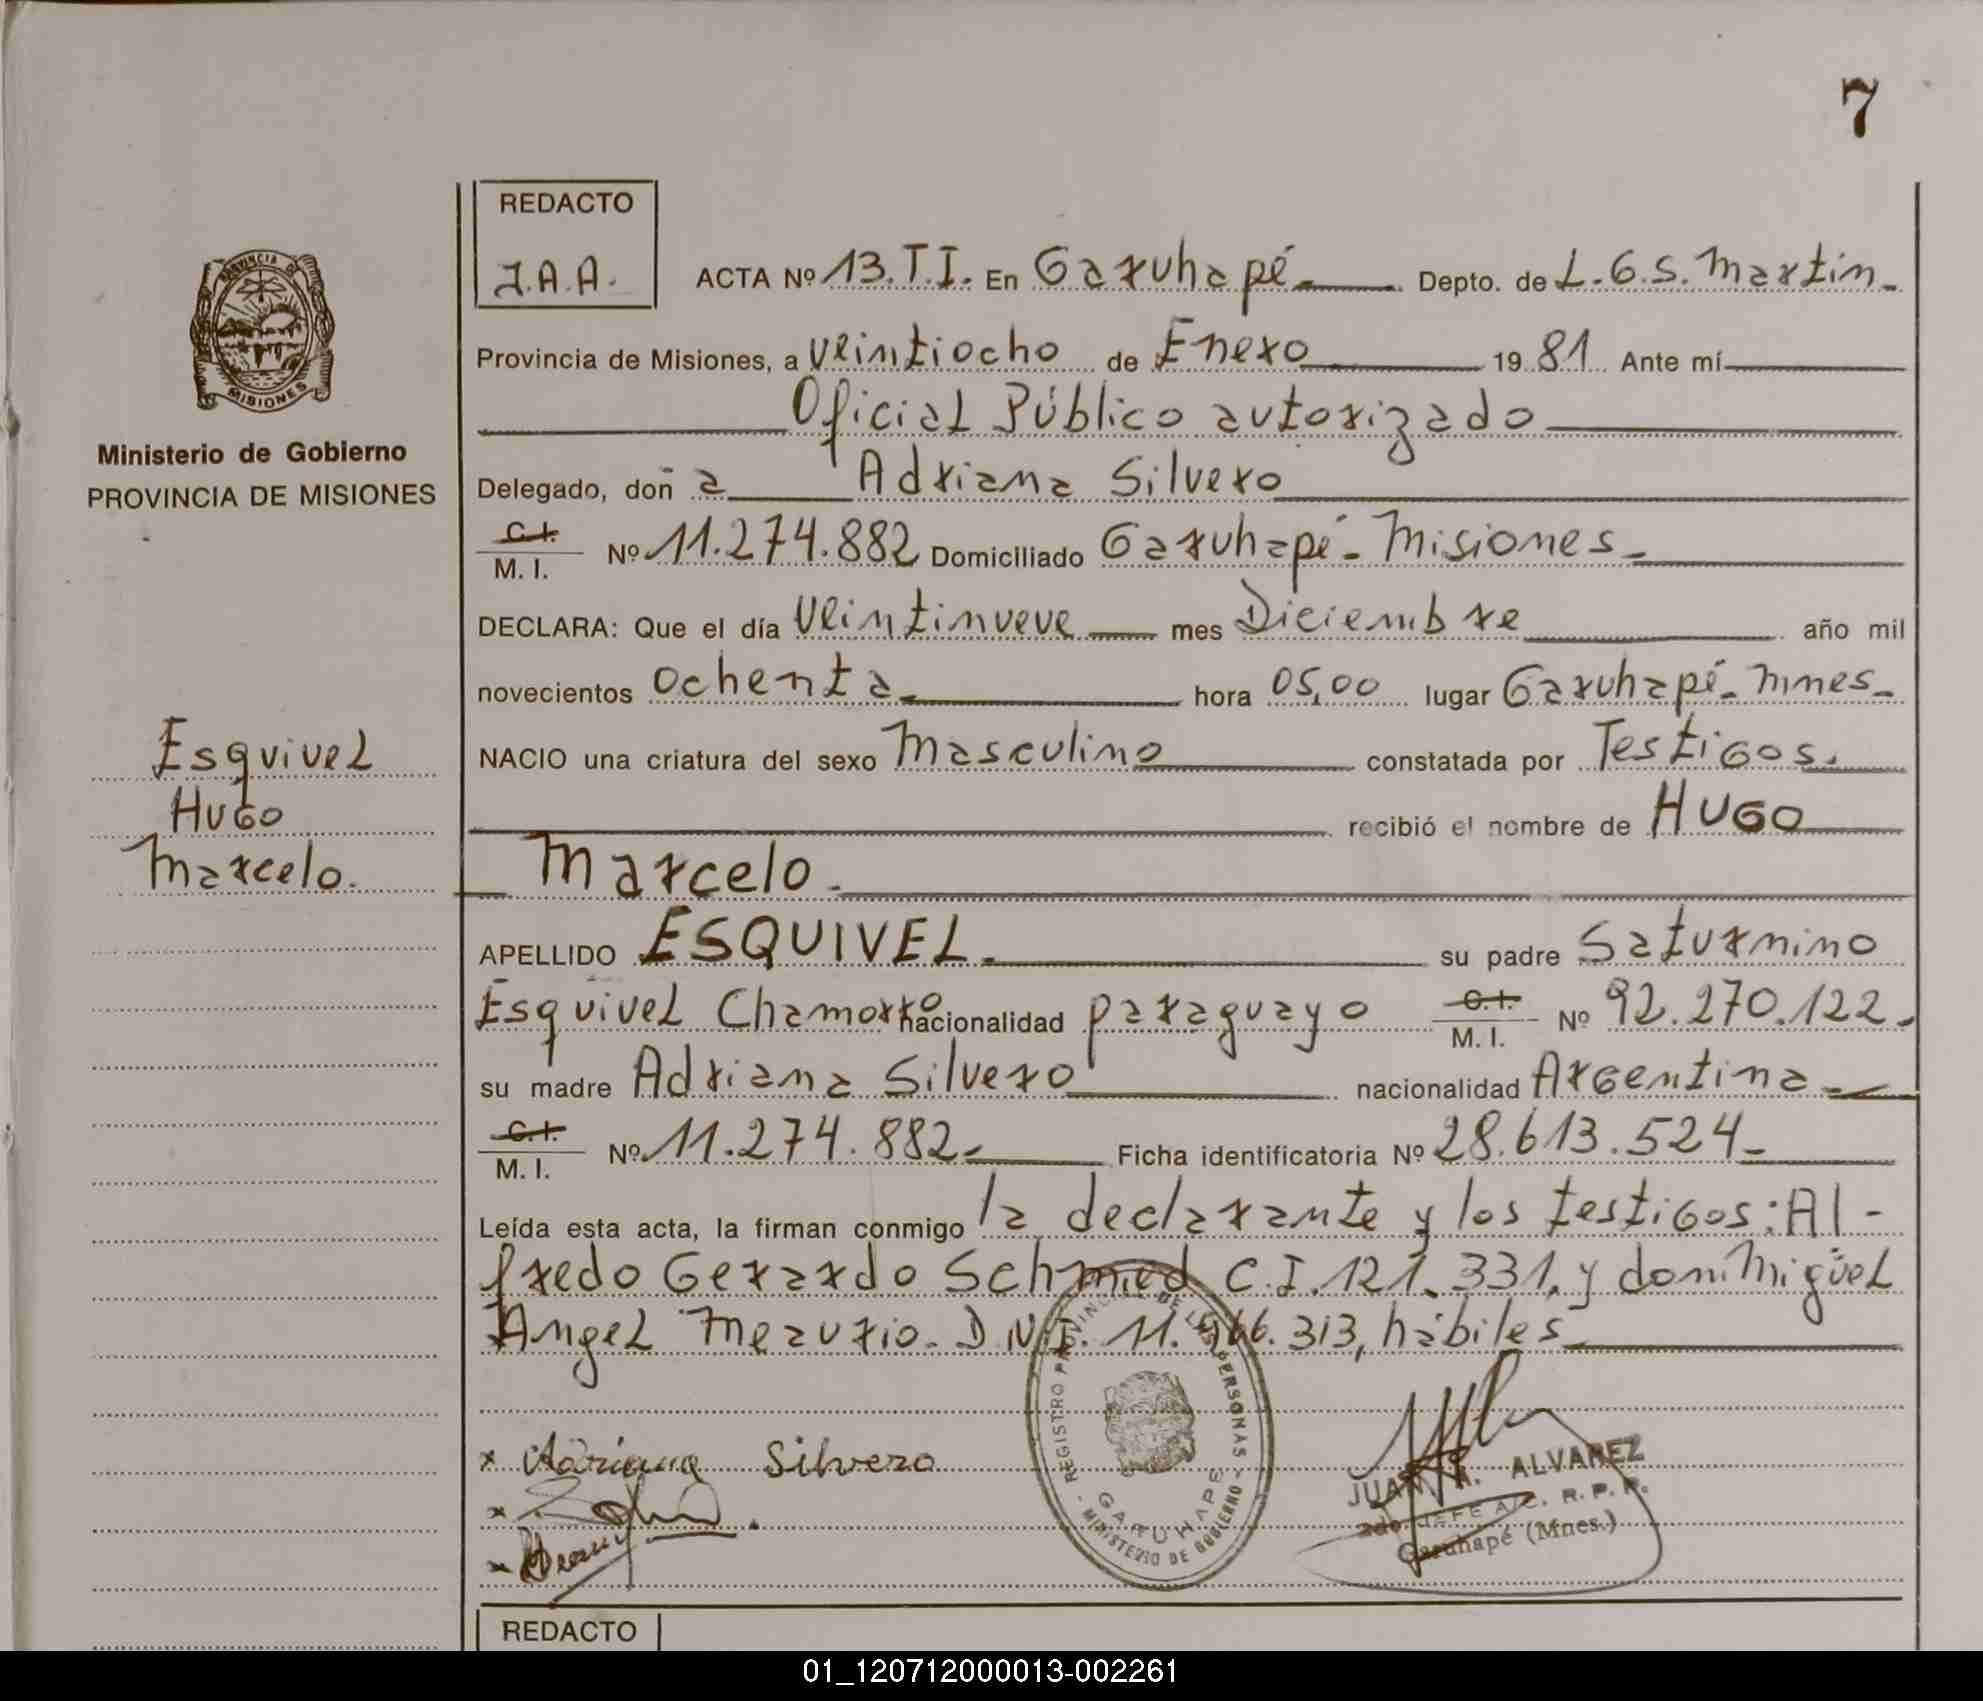 7
REDACTO
J.A.A.
ACTA Nº 13.T.I. En Garuhapé. Depto. de L.G.S. Martin.
Provincia de Misiones, a veintiocho de Enero 1981 Ante mí
Oficial Público autorizado
Delegado, doña Adriana Silvero
C.I.
M. I. Nº 11.274.882 Domiciliado Garuhapé - Misiones.
DECLARA: Que el día veintinueve mes Diciembre año mil
novecientos ochenta. hora 05,00 lugar Garuhapé - Mnes.
NACIO una criatura del sexo Masculino constatada por Testigos.
recibió el nombre de HUGO
Marcelo.
APELLIDO ESQUIVEL. su padre Saturnino
Esquivel Chamorro nacionalidad paraguayo C.I. M. I. Nº 92.270.122.
su madre Adriana Silvero nacionalidad Argentina.
C.I.
M. I. Nº 11.274.882. Ficha identificatoria Nº 28.613.524
Leída esta acta, la firman conmigo la declarante y los testigos: Al-
fredo Gerardo Schmied C.I. 121.331, y don Miguel
Angel Meaurio. D.N.I. 11.966.313, hábiles
x Adriana Silvero
x
x
PROVINCIA DE MISIONES
Ministerio de Gobierno
PROVINCIA DE MISIONES
Esquivel
Hugo
Marcelo.
REGISTRO PROVINCIAL DE LAS PERSONAS
MINISTERIO DE GOBIERNO
GARUHAPE
JUAN A. ALVAREZ
2do. JEFE A/C. R. P. P.
Garuhapé (Mnes.)
REDACTO
01_120712000013-002261